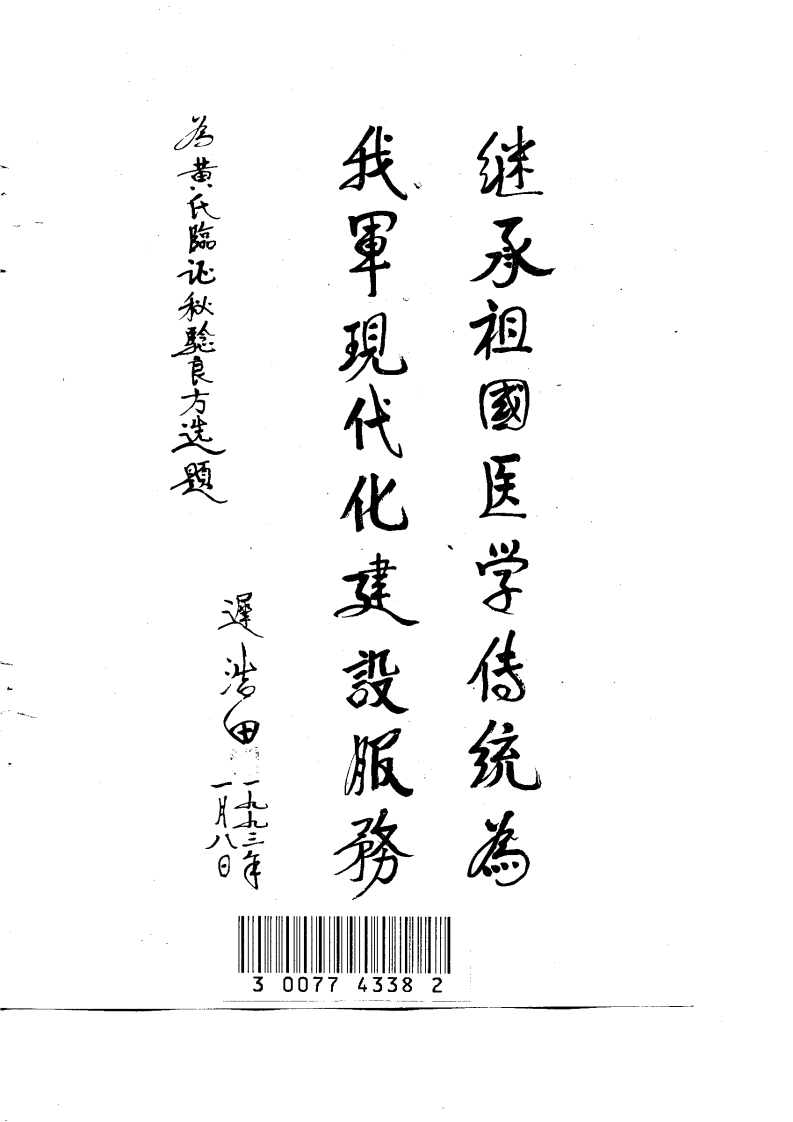 继承祖國医学传统為
我軍現代化建設服務
為黄氏臨证秘驗良方选題
遲浩田
一九九三年
一月八日
3 0077 4338 2